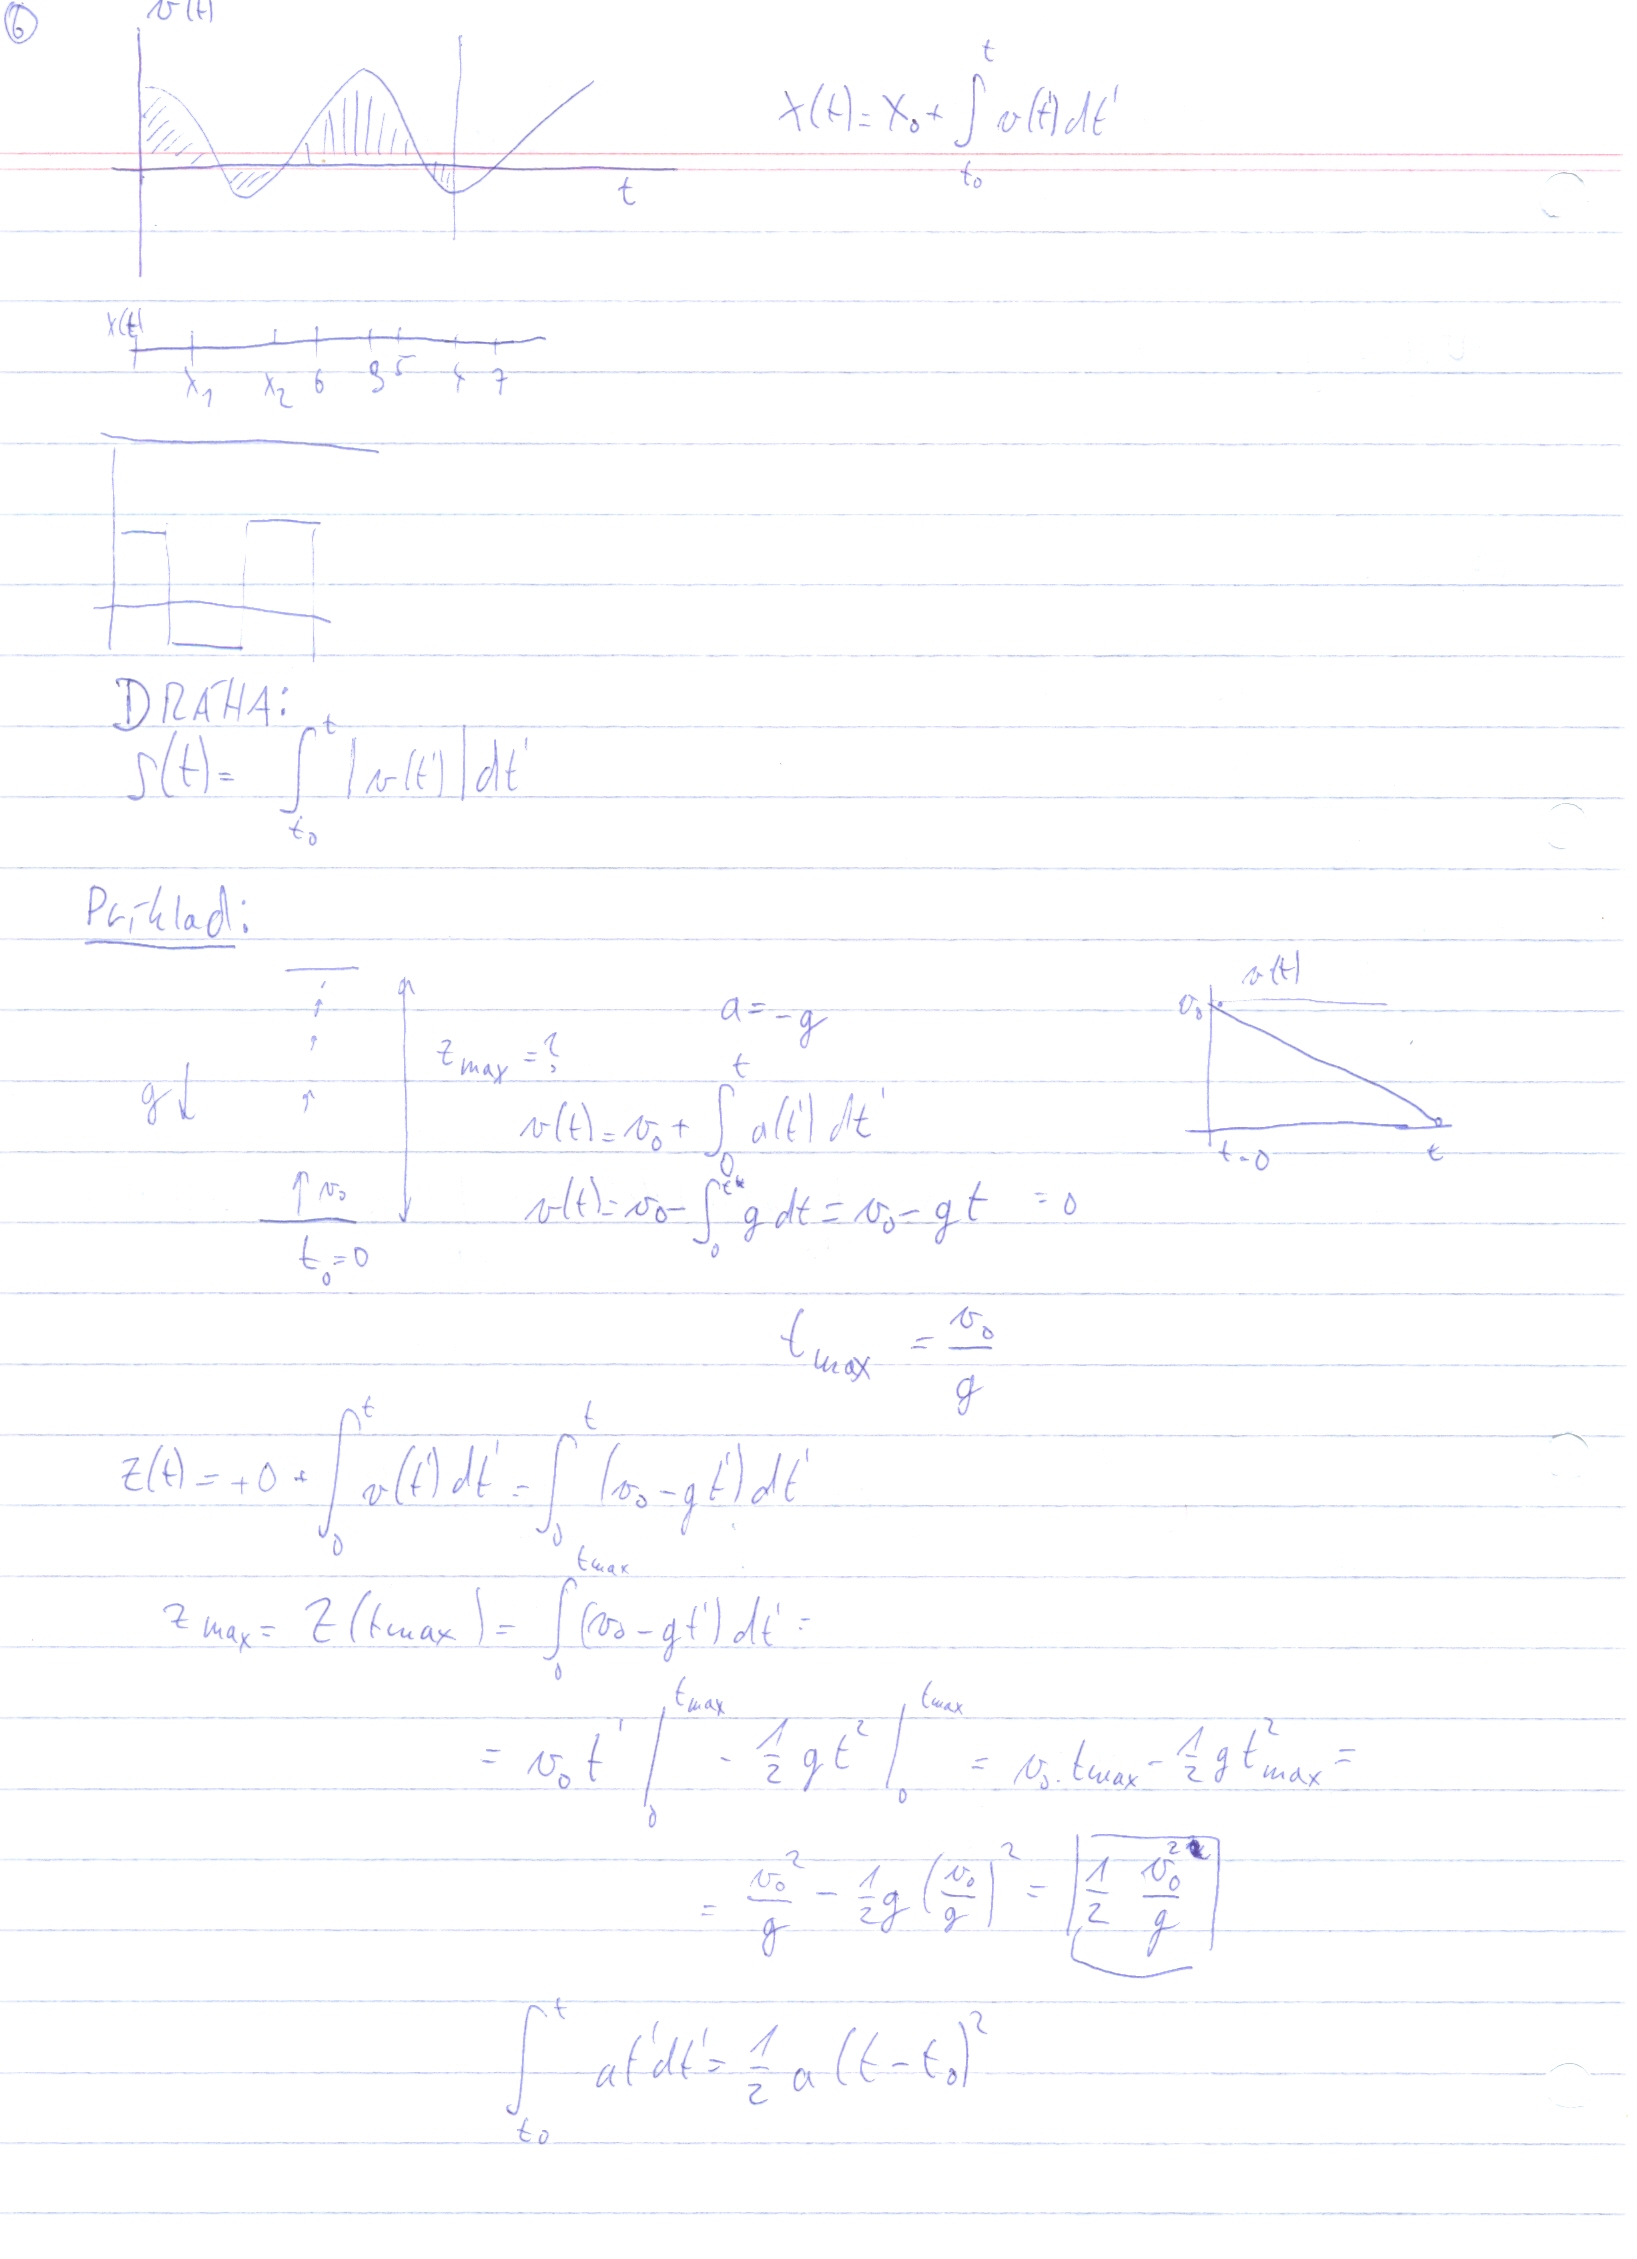 6
v(t)
x(t) = x₀ + ∫_{t₀}^{t} v(t') dt'
t
x(t)
x₁ x₂ 6 3 5 4 7
DRÁHA:
s(t) = ∫_{t₀}^{t} |v(t')| dt'
Příklad:
v(t)
v₀
t=0 t
g↓
z_max = ?
↑ v₀
t₀ = 0
a = -g
v(t) = v₀ + ∫_{0}^{t} a(t') dt'
v(t) = v₀ - ∫_{0}^{t} g dt = v₀ - gt = 0
t_max = v₀/g
z(t) = +0 + ∫_{0}^{t} v(t') dt' = ∫_{0}^{t} (v₀ - gt') dt'
z_max = z(t_max) = ∫_{0}^{t_max} (v₀ - gt') dt' =
= v₀t' |_{0}^{t_max} - 1/2 gt² |_{0}^{t_max} = v₀·t_max - 1/2 gt²_max =
= v₀²/g - 1/2 g (v₀/g)² = 1/2 v₀²/g
∫_{t₀}^{t} at'dt' = 1/2 a (t - t₀)²